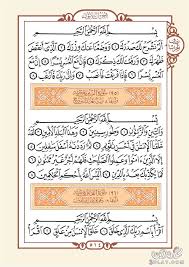 بِسْمِ اللَّهِ الرَّحْمَٰنِ الرَّحِيمِ
أَلَمْ نَشْرَحْ لَكَ صَدْرَكَ ۝ وَوَضَعْنَا عَنكَ وِزْرَكَ ۝ الَّذِي أَنقَضَ
ظَهْرَكَ ۝ وَرَفَعْنَا لَكَ ذِكْرَكَ ۝ فَإِنَّ مَعَ الْعُسْرِ يُسْرًا ۝ إِنَّ مَعَ الْعُسْرِ
يُسْرًا ۝ فَإِذَا فَرَغْتَ فَانصَبْ ۝ وَإِلَىٰ رَبِّكَ فَارْغَب ۝
بِسْمِ اللَّهِ الرَّحْمَٰنِ الرَّحِيمِ
وَالتِّينِ وَالزَّيْتُونِ ۝ وَطُورِ سِينِينَ ۝ وَهَٰذَا الْبَلَدِ الْأَمِينِ ۝
لَقَدْ خَلَقْنَا الْإِنسَانَ فِي أَحْسَنِ تَقْوِيمٍ ۝ ثُمَّ رَدَدْنَاهُ أَسْفَلَ سَافِلِينَ ۝
إِلَّا الَّذِينَ آمَنُوا وَعَمِلُوا الصَّالِحَاتِ فَلَهُمْ أَجْرٌ غَيْرُ مَمْنُونٍ ۝
فَمَا يُكَذِّبُكَ بَعْدُ بِالدِّينِ ۝ أَلَيْسَ اللَّهُ بِأَحْكَمِ الْحَاكِمِينَ ۝
بِسْمِ اللَّهِ الرَّحْمَٰنِ الرَّحِيمِ
اقْرَأْ بِاسْمِ رَبِّكَ الَّذِي خَلَقَ ۝ خَلَقَ الْإِنسَانَ مِنْ عَلَقٍ ۝ اقْرَأْ